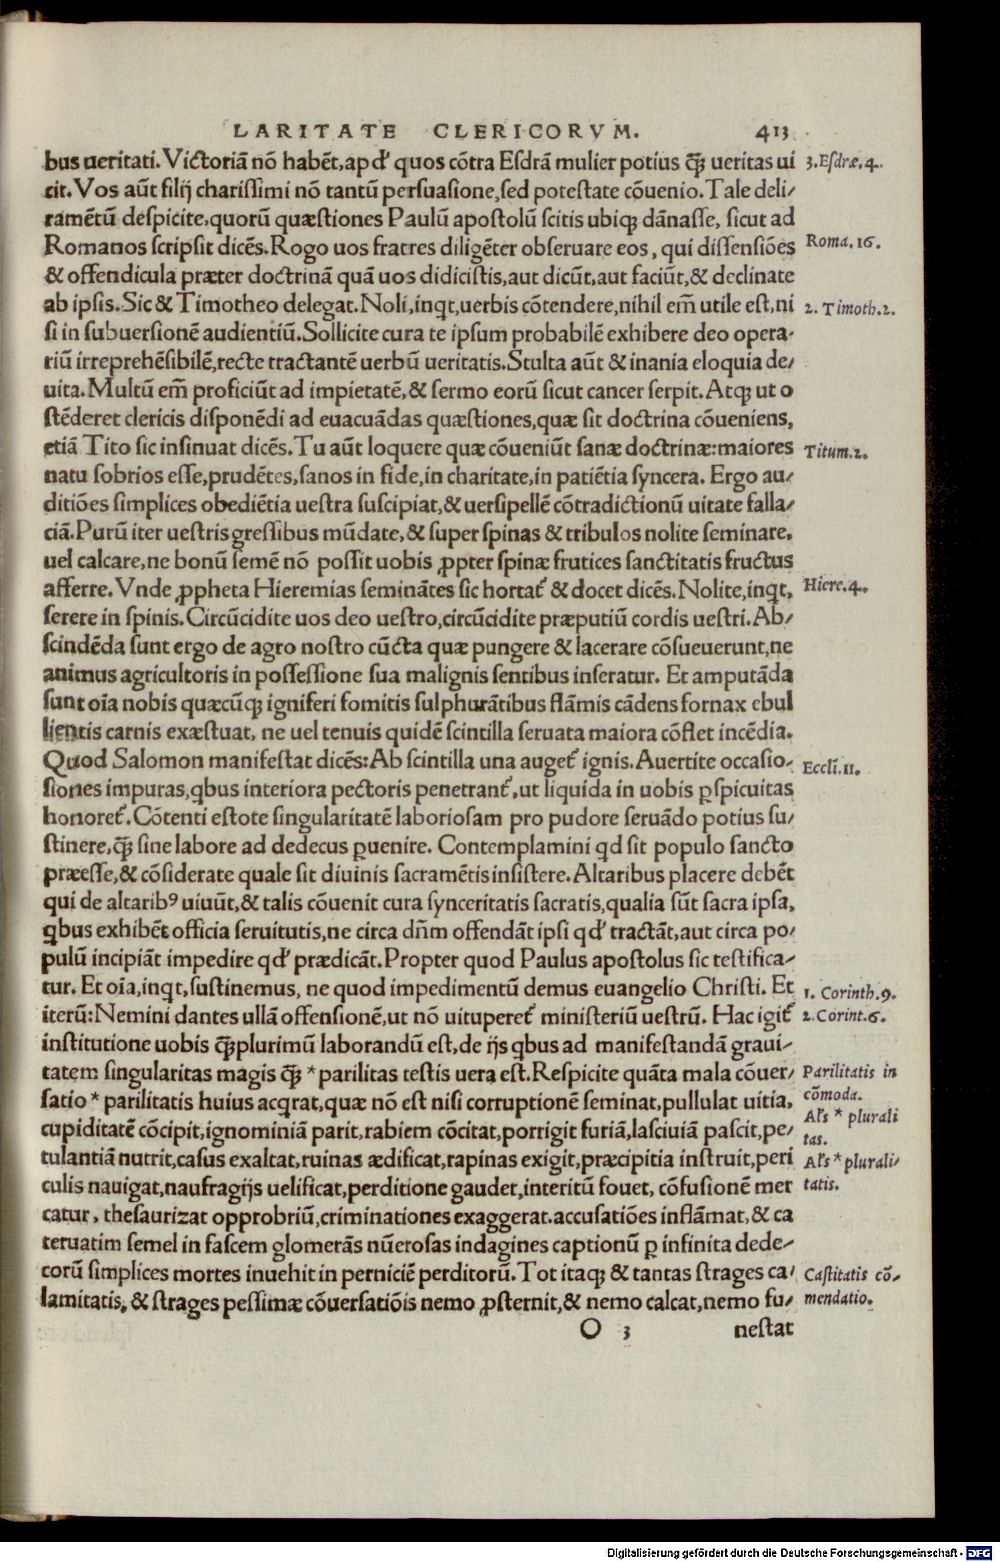 LARITATE CLERICORVM. 413
bus ueritati. Victoriā nō habēt, apđ quos cōtra Esdrā mulier potius q̃ʒ ueritas ui 3. Esdræ. 4.
cit. Vos aūt filij charissimi nō tantū persuasione, sed potestate cōuenio. Tale deli/
ramētū despicite, quorū quæstiones Paulū apostolū scitis ubiqʒ dānasse, sicut ad
Romanos scripsit dicēs. Rogo uos fratres diligēter obseruare eos, qui dissensiōes Roma. 16.
& offendicula præter doctrinā quā uos didicistis, aut dicūt, aut faciūt, & declinate
ab ipsis. Sic & Timotheo delegat. Noli, inqt, uerbis cōtendere, nihil em̃ utile est, ni 2. Timoth. 2.
si in subuersionē audientiū. Sollicite cura te ipsum probabilē exhibere deo opera-
riū irreprehēsibilē, recte tractantē uerbū ueritatis. Stulta aūt & inania eloquia de/
uita. Multū em̃ proficiūt ad impietatē, & sermo eorū sicut cancer serpit. Atqʒ ut o
stēderet clericis disponēdi ad euacuādas quæstiones, quæ sit doctrina cōueniens,
etiā Tito sic insinuat dicēs. Tu aūt loquere quæ cōueniūt sanæ doctrinæ: maiores Titum. 2.
natu sobrios esse, prudētes, sanos in fide, in charitate, in patiētia syncera. Ergo au/
ditiōes simplices obediētia uestra suscipiat, & uersipellē cōtradictionū uitate falla/
ciā. Purū iter uestris gressibus mūdate, & super spinas & tribulos nolite seminare,
uel calcare, ne bonū semē nō possit uobis ꝓpter spinæ frutices sanctitatis fructus
afferre. Vnde ꝓpheta Hieremias seminātes sic hortat̃ & docet dicēs. Nolite, inqt, Hiere. 4.
serere in spinis. Circūcidite uos deo uestro, circūcidite præputiū cordis uestri. Ab/
scindēda sunt ergo de agro nostro cūcta quæ pungere & lacerare cōsueuerunt, ne
animus agricultoris in possessione sua malignis sentibus inseratur. Et amputāda
sunt oīa nobis quæcūqʒ igniferi fomitis sulphurātibus flāmis cādens fornax ebul
lientis carnis exæstuat, ne uel tenuis quidē scintilla seruata maiora cōflet incēdia.
Quod Salomon manifestat dicēs: Ab scintilla una auget̃ ignis. Auertite occasio- Eccli. 11.
siones impuras, qbus interiora pectoris penetrant̃, ut liquida in uobis ꝑspicuitas
honoret̃. Cōtenti estote singularitatē laboriosam pro pudore seruādo potius su/
stinere, q̃ʒ sine labore ad dedecus ꝑuenire. Contemplamini qd sit populo sancto
præesse, & cōsiderate quale sit diuinis sacramētis insistere. Altaribus placere debēt
qui de altaribꝰ uiuūt, & talis cōuenit cura synceritatis sacratis, qualia sūt sacra ipsa,
qbus exhibēt officia seruitutis, ne circa dñm offendāt ipsi qđ tractāt, aut circa po/
pulū incipiāt impedire qđ prædicāt. Propter quod Paulus apostolus sic testifica/
tur. Et oīa, inqt, sustinemus, ne quod impedimentū demus euangelio Christi. Et 1. Corinth. 9.
iterū: Nemini dantes ullā offensionē, ut nō uituperet̃ ministeriū uestrū. Hac igit̃ 2. Corint. 6.
institutione uobis q̃ʒplurimū laborandū est, de ijs qbus ad manifestandā graui/
tatem singularitas magis q̃ʒ *parilitas testis uera est. Respicite quāta mala cōuer/ Parilitatis in
satio * parilitatis huius acqrat, quæ nō est nisi corruptionē seminat, pullulat uitia, cōmoda.
Al's * plurali
cupiditatē cōcipit, ignominiā parit, rabiem cōcitat, porrigit furiā, lasciuiā pascit, pe/ tas.
tulantiā nutrit, casus exaltat, ruinas ædificat, rapinas exigit, præcipitia instruit, peri Al's *plurali/
culis nauigat, naufragijs uelificat, perditione gaudet, interitū fouet, cōfusionē mer tatis.
catur, thesaurizat opprobriū, criminationes exaggerat. accusatiōes inflāmat, & ca
teruatim semel in fascem glomerās nūerosas indagines captionū ꝑ infinita dede/
corū simplices mortes inuehit in perniciē perditorū. Tot itaqʒ & tantas strages ca/ Castitatis cō/
lamitatis, & strages pessimæ cōuersatiōis nemo ꝓsternit, & nemo calcat, nemo fu/ mendatio.
O 3 nestat
Digitalisierung gefördert durch die Deutsche Forschungsgemeinschaft - DFG